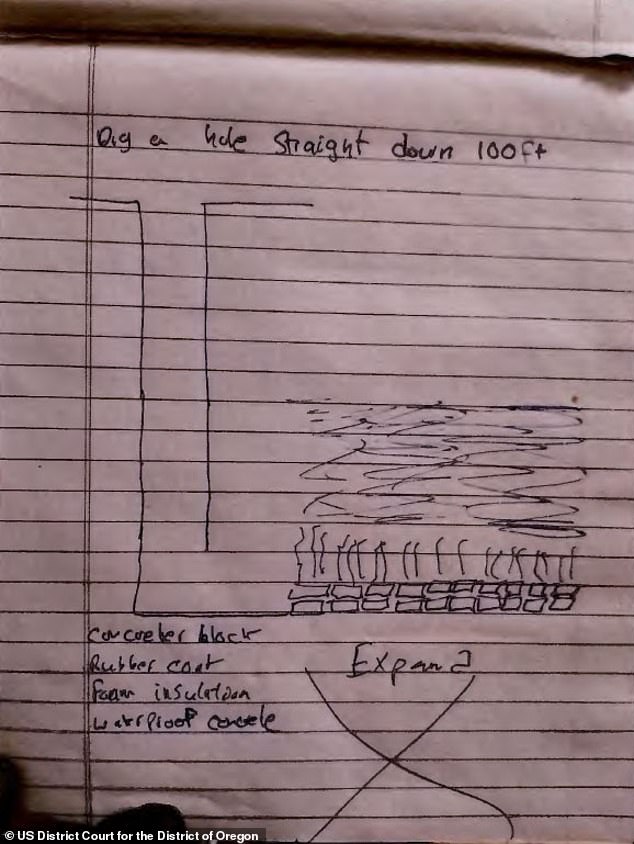 Dig a hole straight down 100ft
Concreter block
Rubber coat
Foam insulation
waterproof concrete
Expand
© US District Court for the District of Oregon